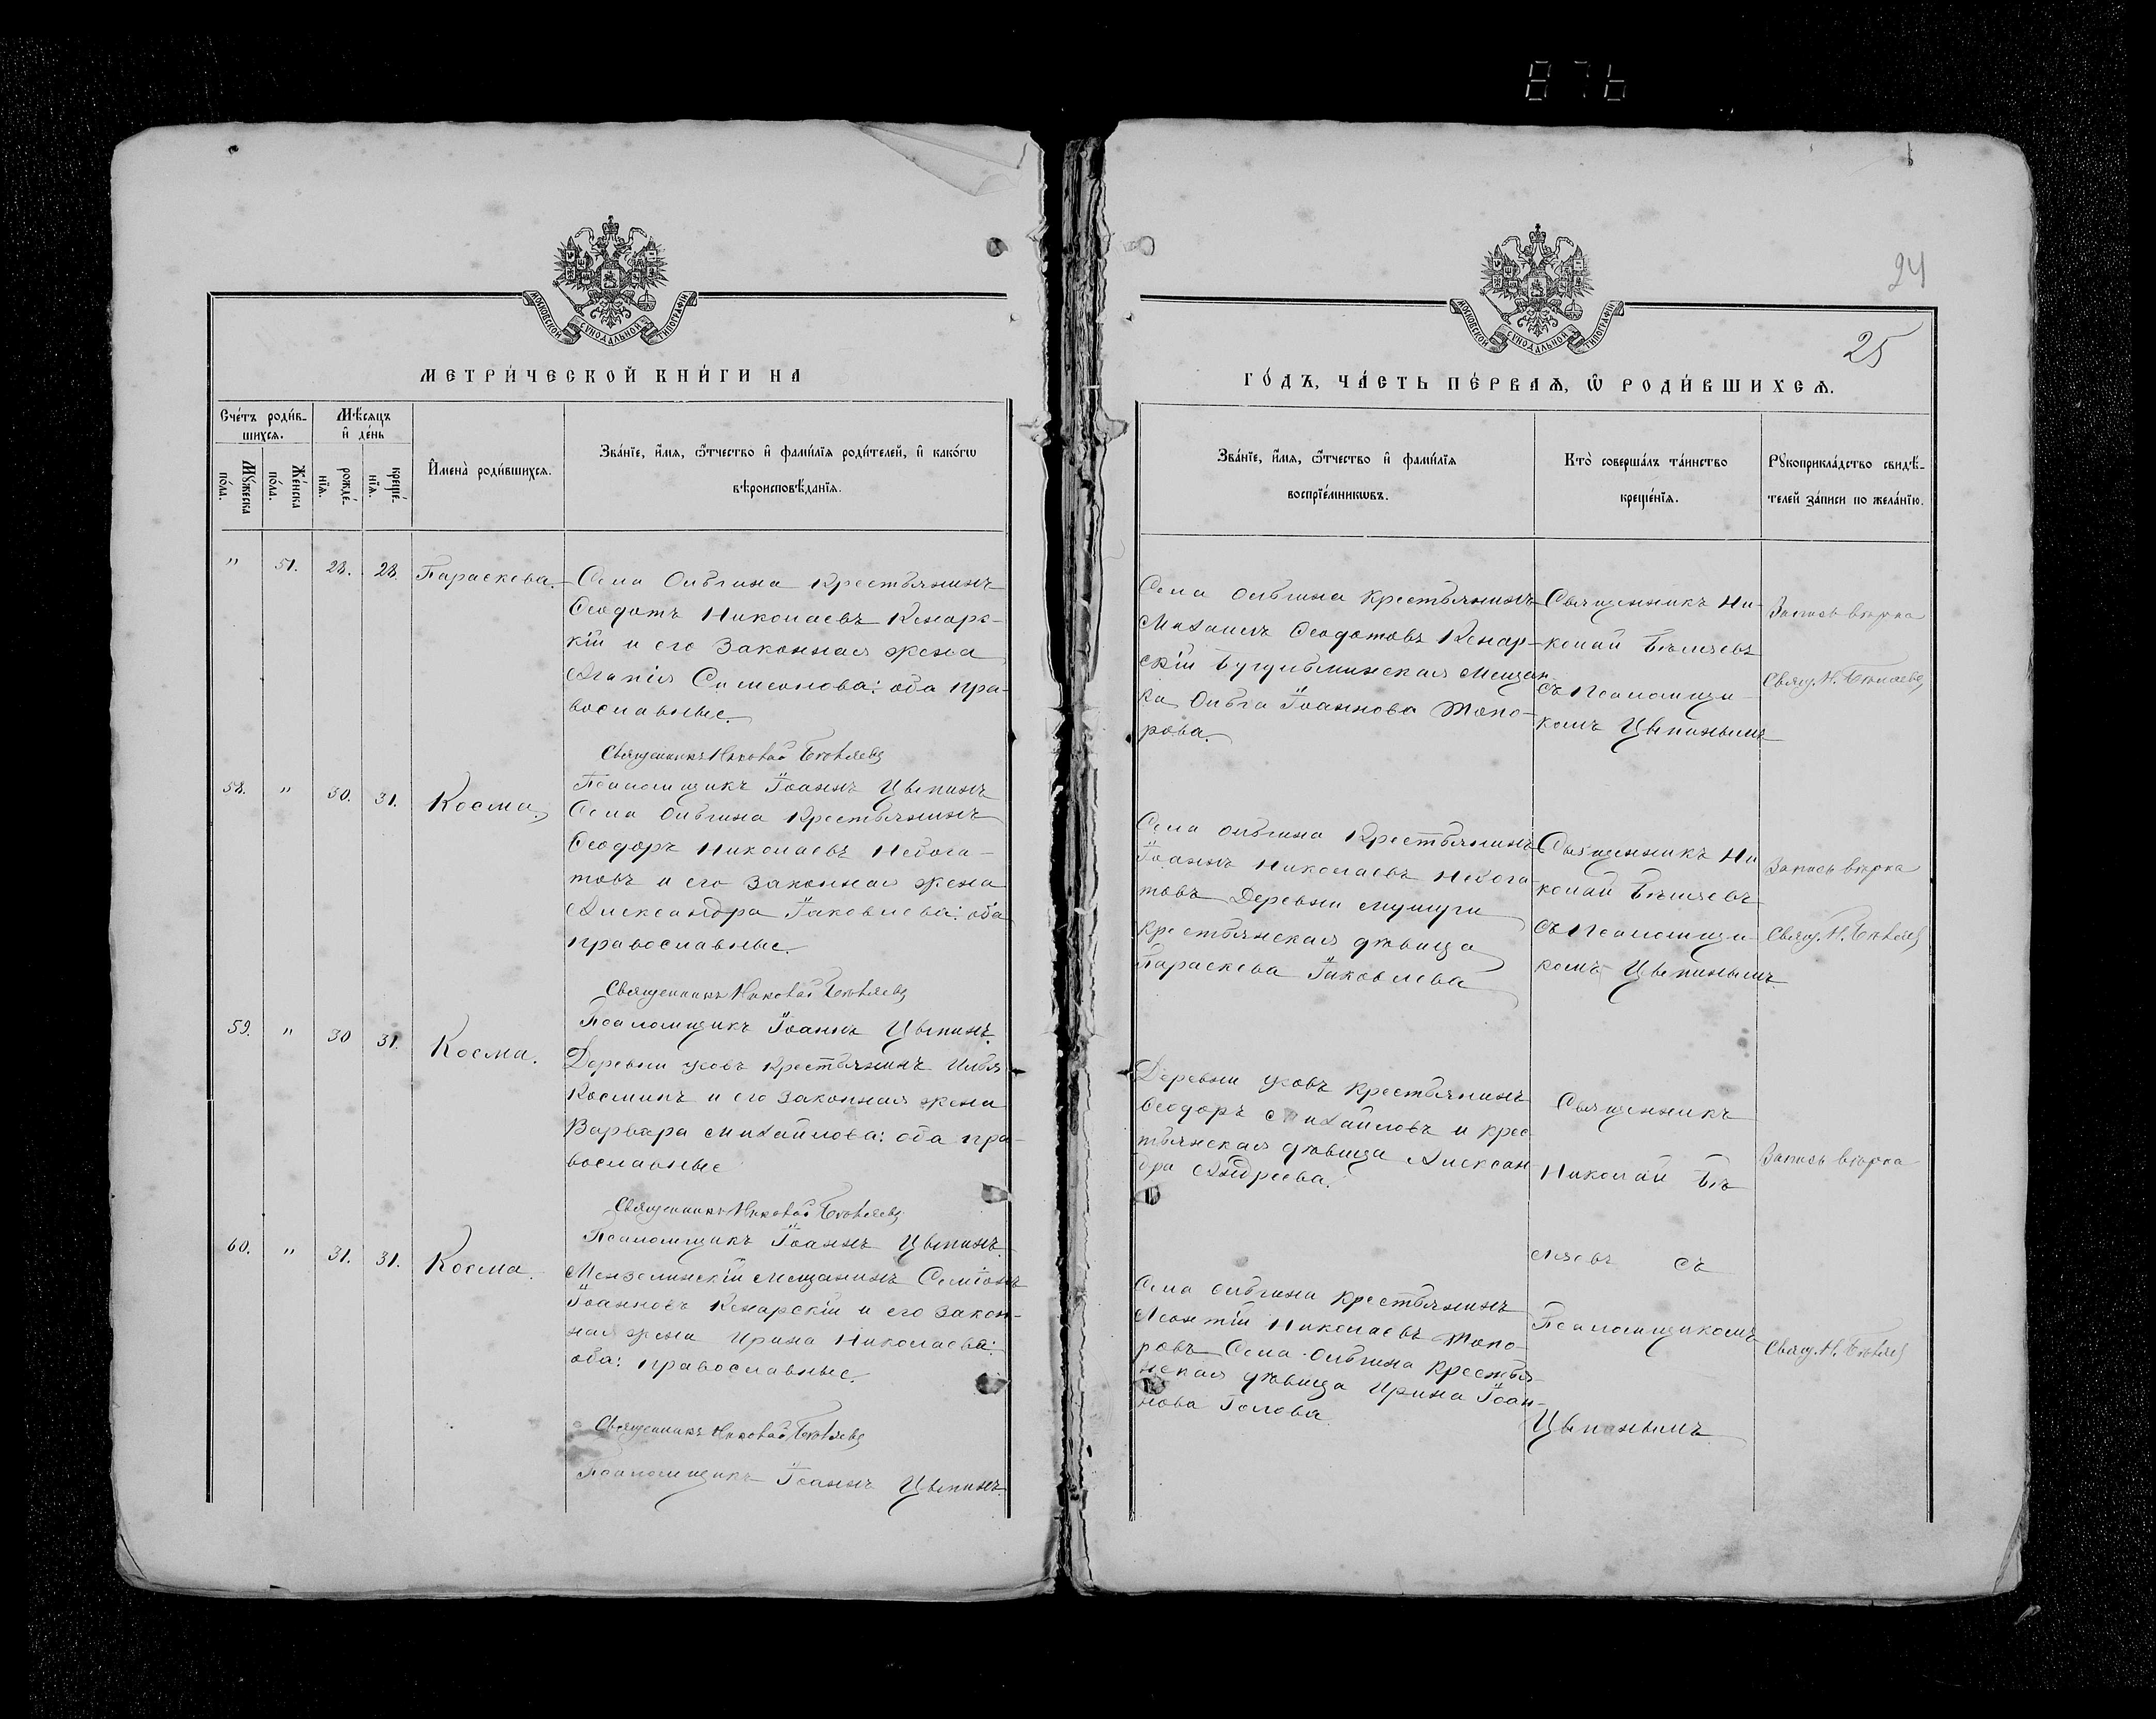 876
24
25
МОСКОВСКОЙ СУНОДАЛЬНОЙ ТИПОГРАФІИ
МЕТРИ́ЧЕСКОЙ КНИ́ГИ НА
Сче́тъ роди́в-
шихсѧ.
Мѣ́сѧцъ
и҆ де́нь
Мꙋ́жеска
по́ла.
Же́нска
по́ла.
рожде́-
нїѧ.
креще́-
нїѧ.
И҆мена̀ роди́вшихсѧ.
Зва́нїе, и҆́мѧ, ѻ҆́тчество и҆ фами́лїѧ роди́телей, и҆ како́гѡ
вѣроисповѣ́данїѧ.
" 51. 28. 28. Параскева.
Села Ольгина Крестьянинъ
Ѳеодотъ Николаевъ Кенарс-
кій и его законная жена
Агапія Симеонова: оба пра-
вославные.
Священникъ Николай Бѣляевъ
Псаломщикъ Іоаннъ Цыпинъ
58. " 30. 31. Косма.
Села Ольгина Крестьянинъ
Ѳеодоръ Николаевъ Небога-
товъ и его законная жена
Александра Іаковлева: оба
православные.
Священникъ Николай Бѣляевъ
Псаломщикъ Іоаннъ Цыпинъ.
59. " 30 31. Косма.
Деревни Усовъ Крестьянинъ Илья
Косминъ и его законная жена
Варвара Михайлова: оба пра-
вославные
Священникъ Николай Бѣляевъ
Псаломщикъ Іоаннъ Цыпинъ.
60. " 31. 31. Косма.
Мензелинскій мещанинъ Семіонъ
Іоанновъ Кенарскій и его закон-
ная жена Ирина Николаева:
оба: православные.
Священникъ Николай Бѣляевъ
Псаломщикъ Іоаннъ Цыпинъ.
МОСКОВСКОЙ СУНОДАЛЬНОЙ ТИПОГРАФІИ
ГО́ДЪ, ЧА́СТЬ ПЕ́РВАѦ, Ѽ РОДИ́ВШИХСѦ.
Зва́нїе, и҆́мѧ, ѻ҆́тчество и҆ фами́лїѧ
воспрїе́мникѡвъ.
Кто̀ соверша́лъ та́инство
креще́нїѧ.
Рꙋкоприкла́дство свидѣ́-
телей за́писи по жела́нїю.
Села Ольгина крестьянинъ
Михаилъ Ѳеодотовъ Кенар-
скій Бугульминская мещан-
ка Ольга Іоаннова Топо-
рова.
Священникъ Ни-
колай Бѣляевъ
съ Псаломщи-
комъ Цыпинымъ
Запись вѣрна
Свящ. Н. Бѣляевъ
Села Ольгина Крестьянинъ
Іоаннъ Николаевъ Небога-
товъ Деревни
крестьянская дѣвица
Параскева Іаковлева
Священникъ Ни
колай Бѣляевъ
съ Псаломщи-
комъ Цыпинымъ.
Запись вѣрна
Свящ. Н. Бѣляевъ
Деревни Усовъ крестьянинъ
Ѳеодоръ Михайловъ и крес
тьянская дѣвица Алексан
дра Андреева.
Священникъ
Николай Бѣ
ляевъ съ
Псаломщикомъ
Цыпинымъ
Запись вѣрна
Свящ. Н. Бѣляевъ
Села Ольгина крестьянинъ
Леонтій Николаевъ Топо-
ровъ Села Ольгина крестья-
нская дѣвица Ирина Іоан-
нова Голова